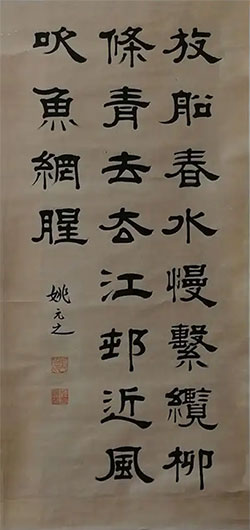 放船春水慢繫纜柳
條青去去江邨近風
吹魚網腥
姚元之